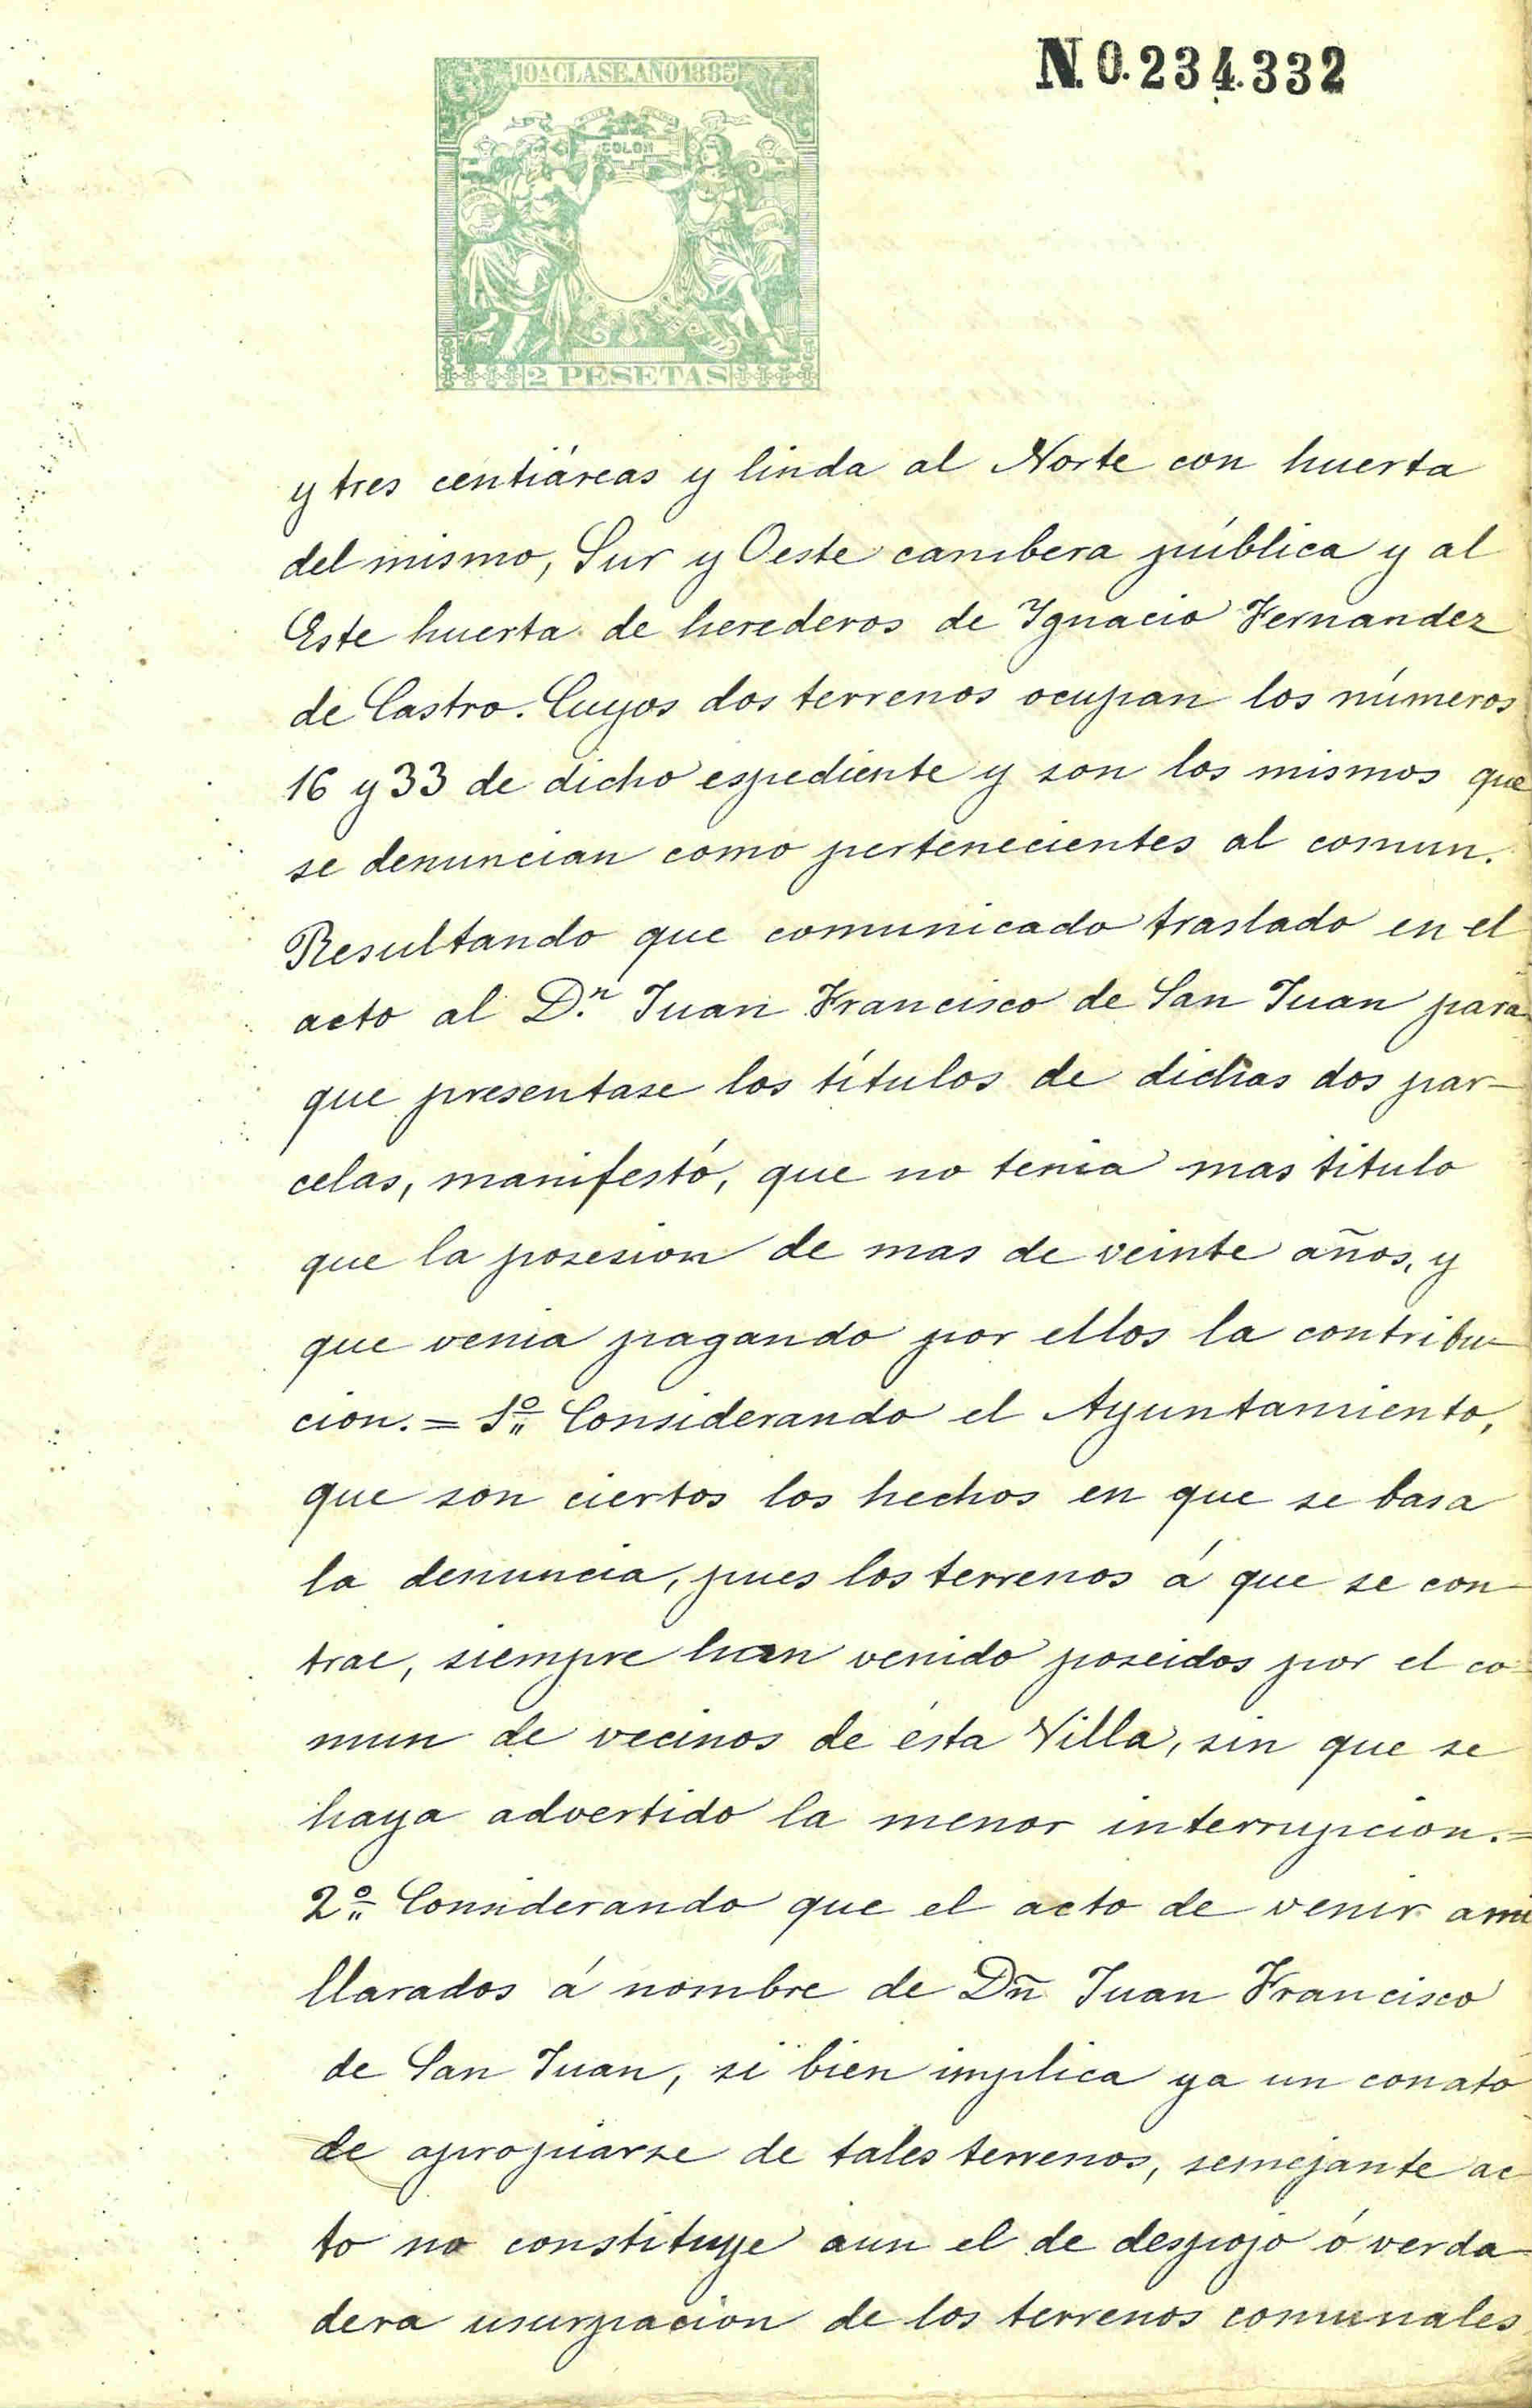 N.0.234.332
10ª CLASE. AÑO 1885
COLON
2 PESETAS
y tres centiáreas y linda al Norte con huerta
del mismo, Sur y Oeste cambera pública y al
Este huerta de herederos de Ignacio Fernandez
de Castro. Cuyos dos terrenos ocupan los números
16 y 33 de dicho espediente y son los mismos que
se denuncian como pertenecientes al comun.
Resultando que comunicado traslado en el
acto al D.ⁿ Juan Francisco de San Juan para
que presentase los títulos de dichas dos par-
celas, manifestó, que no tenia mas titulo
que la posesion de mas de veinte años, y
que venia pagando por ellos la contribu-
cion. = 1º Considerando el Ayuntamiento,
que son ciertos los hechos en que se basa
la denuncia, pues los terrenos á que se con-
trae, siempre han venido poseidos por el co-
mun de vecinos de ésta Villa, sin que se
haya advertido la menor interrupcion. =
2º Considerando que el acto de venir ami
llarados á nombre de Dn̄ Juan Francisco
de San Juan, si bien implica ya un conato
de apropiarse de tales terrenos, semejante ac-
to no constituye aun el de despojo ó verda-
dera usurpacion de los terrenos comunales